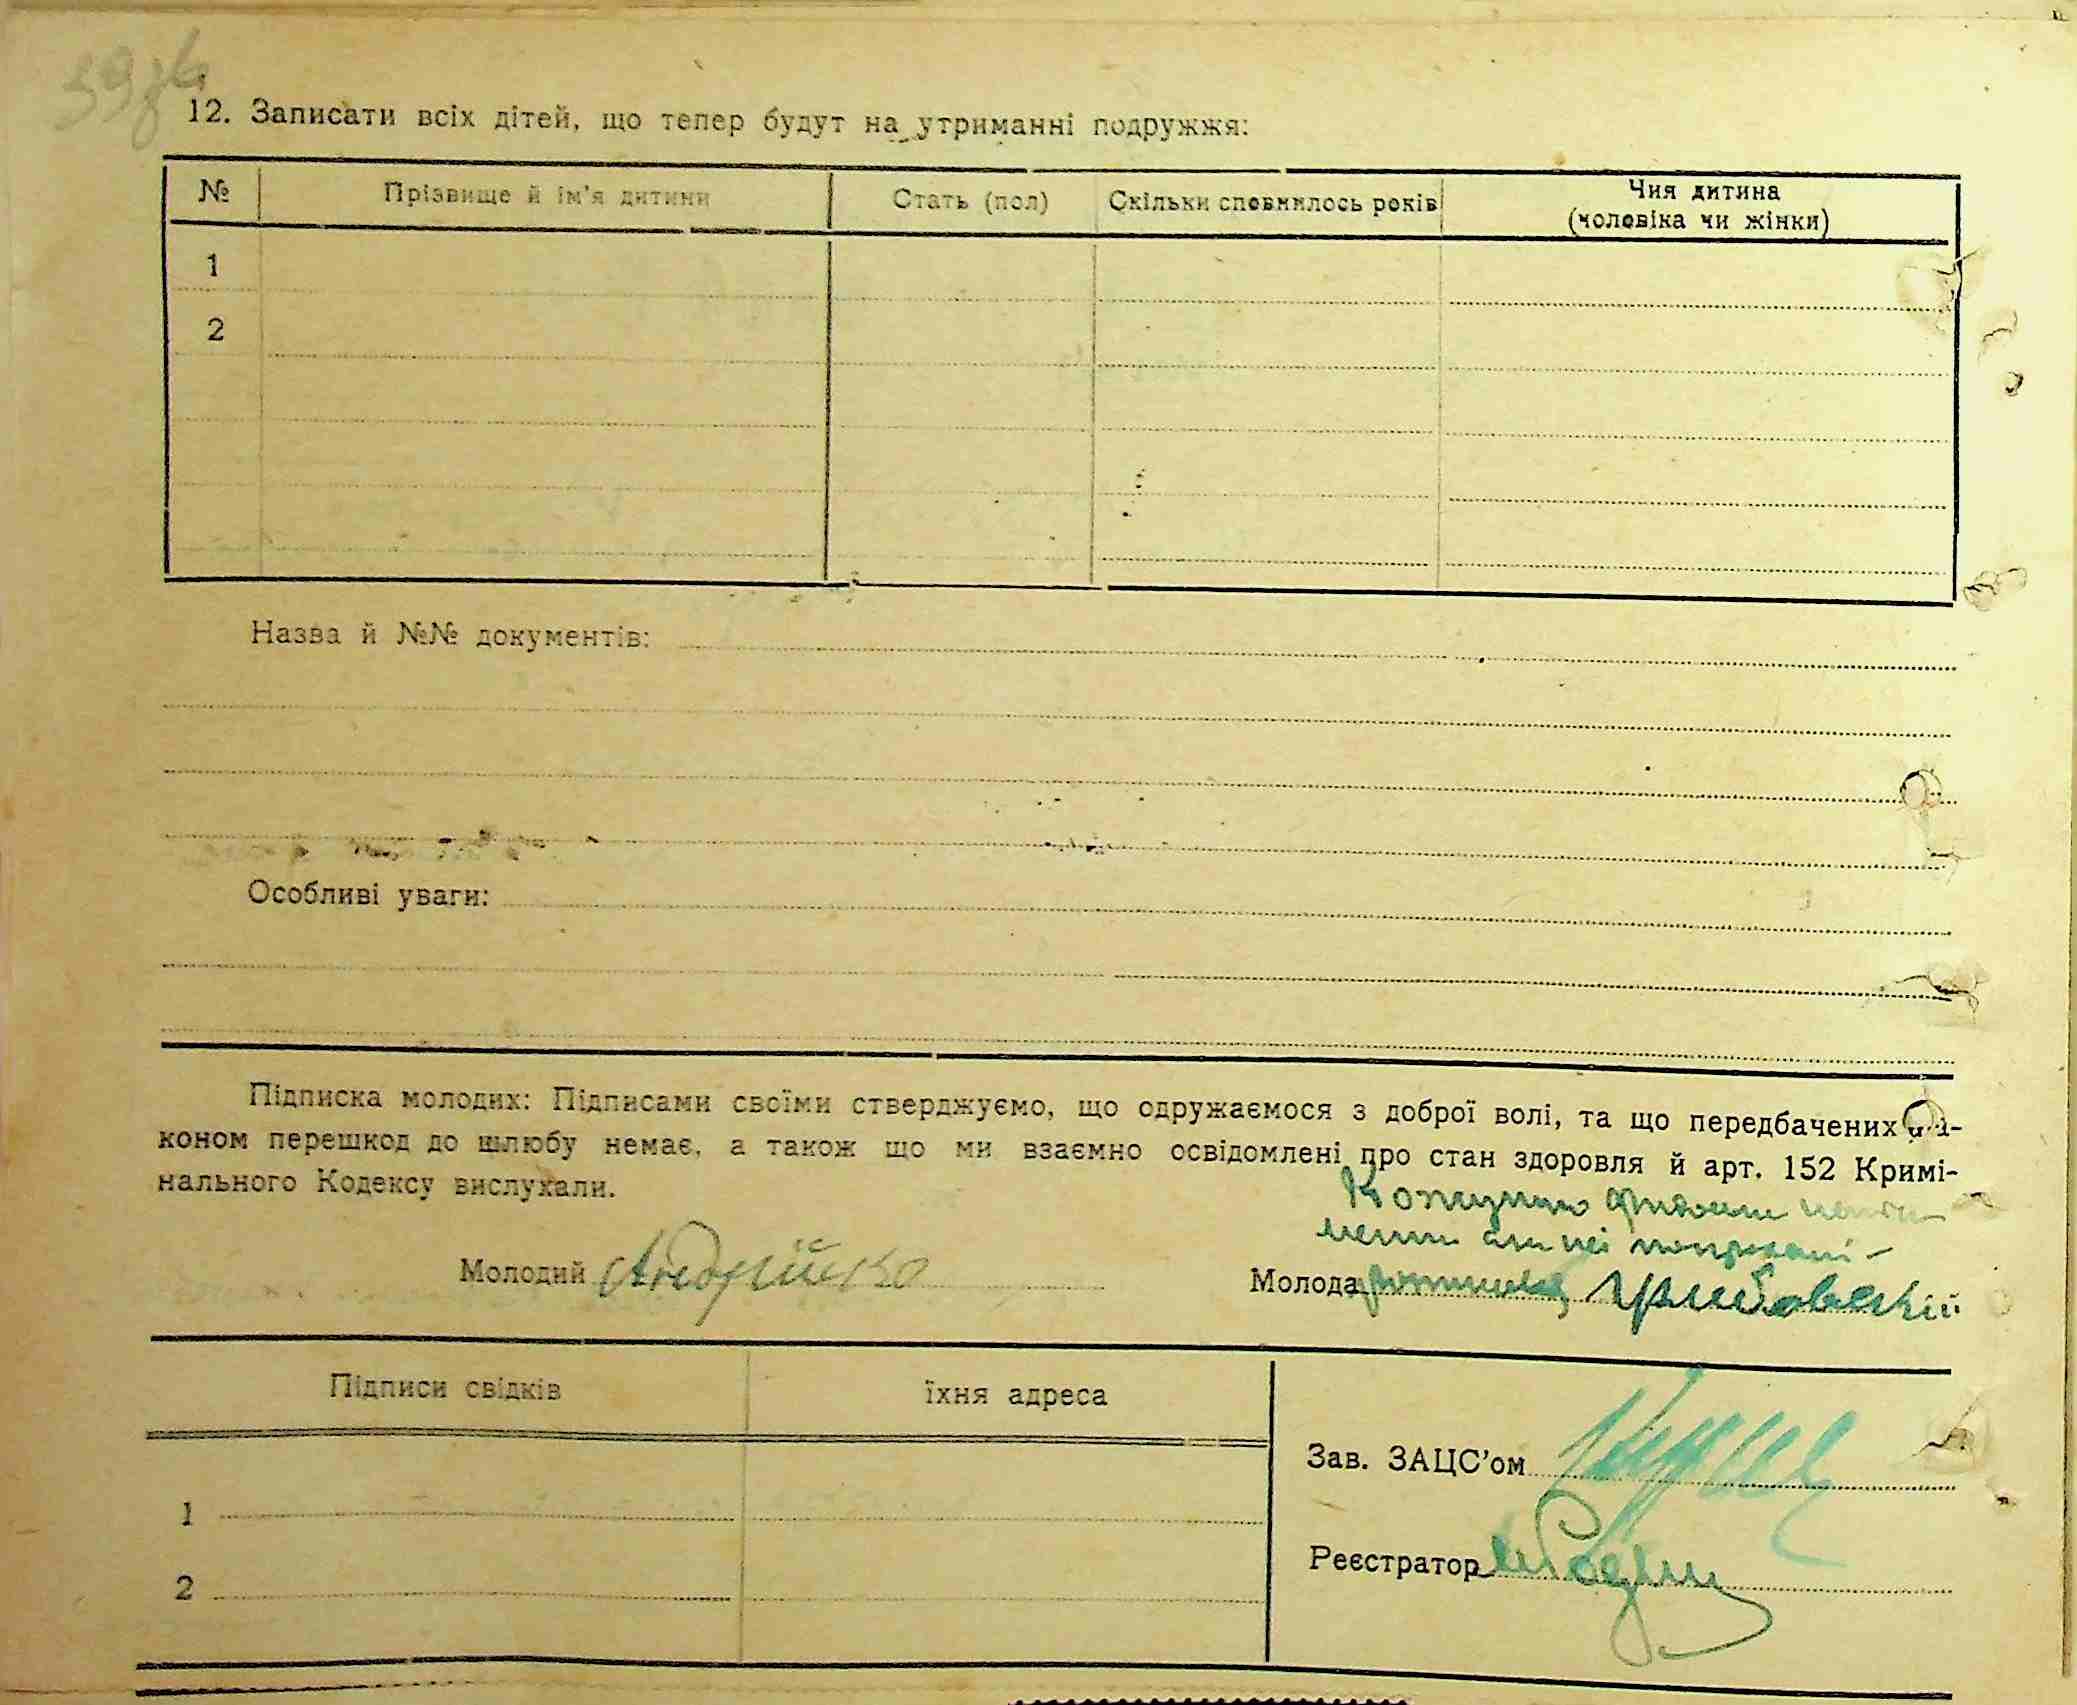 59
12. Записати всіх дітей, що тепер будут на утриманні подружжя:
№ Прізвище й ім'я дитини Стать (пол) Скільки сповнилось років Чия дитина
(чоловіка чи жінки)
1
2
Назва й №№ документів:
Особливі уваги:
Підписка молодих: Підписами своїми стверджуємо, що одружаємося з доброї волі, та що передбачених
коном перешкод до шлюбу немає, а також що ми взаємно освідомлені про стан здоровля й арт. 152 Кримі-
нального Кодексу вислухали.
Молодий Андрійко
Молода
Підписи свідків їхня адреса
Зав. ЗАЦС'ом
1
Реєстратор
2